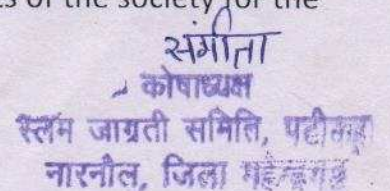 s of the society for the
संगीता
कोषाध्यक्ष
स्लम जाग्रती समिति, पटीकरा
नारनौल, जिला महेन्द्रगढ़